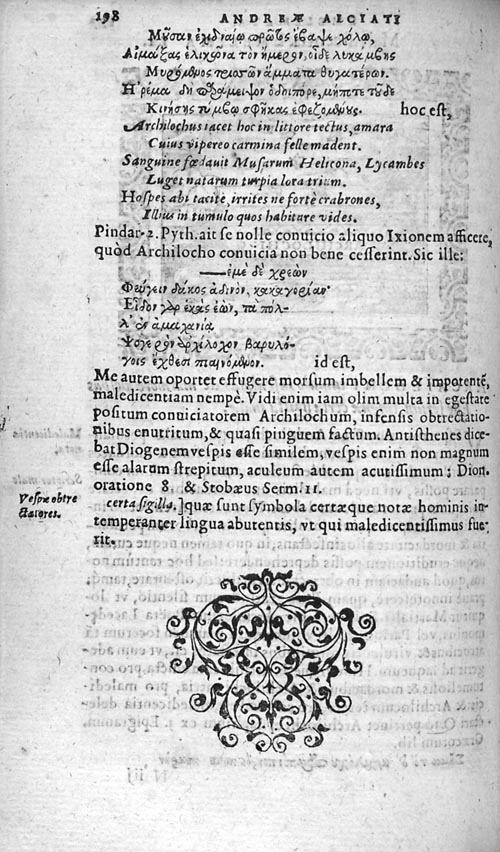 198 ANDREÆ ALCIATI
Μοῦσαν ἐχιδναίῳ πρῶτος ἔβαψε χόλῳ,
Αἱμάξας ἑλικῶνα τὸν ἥμερον, οἶδε λυκάμβης
Μυρόμενος τρισσῶν ἅμματα θυγατέρων.
Ἠρέμα δὴ παράμειψον ὁδοιπόρε, μήποτε τοῦδε
Κινήσῃς τύμβῳ σφῆκας ἐφεζομένους. hoc est,
Archilochus iacet hoc in littore tectus, amara
Cuius vipereo carmina felle madent.
Sanguine fœdauit Musarum Helicona, Lycambes
Luget natarum turpia lora trium.
Hospes abi tacitè, irrites ne fortè crabrones,
Illius in tumulo quos habitare vides.
Pindar. 2. Pyth. ait se nolle conuicio aliquo Ixionem afficere,
quòd Archilocho conuicia non bene cesserint. Sic ille:
ἐμὲ δὲ χρεὼν
Φεύγειν δάκος ἀδινὸν, κακαγοριᾶν
Εἶδον γὰρ ἑκὰς ἐὼν, τὰ πόλ-
λ' ἐν ἀμαχανίᾳ
Ψογερὸν ἀρχίλοχον βαρυλό-
γοις ἔχθεσι πιαινόμενον. id est,
Me autem oportet effugere morsum imbellem & impotentẽ,
maledicentiam nempè. Vidi enim iam olim multa in egestate
positum conuiciatorem Archilochum, infensis obtrectatio-
nibus enutritum, & quasi pinguem factum. Antisthenes dice-
bat Diogenem vespis esse similem, vespis enim non magnum
esse alarum strepitum, aculeum autem acutissimum: Dion.
oratione 8. & Stobæus Serm. 11.
Vespæ obtre
ctatores.
certa sigilla.] quæ sunt symbola certæque notæ hominis in-
temperanter lingua abutentis, vt qui maledicentissimus fue-
rit.